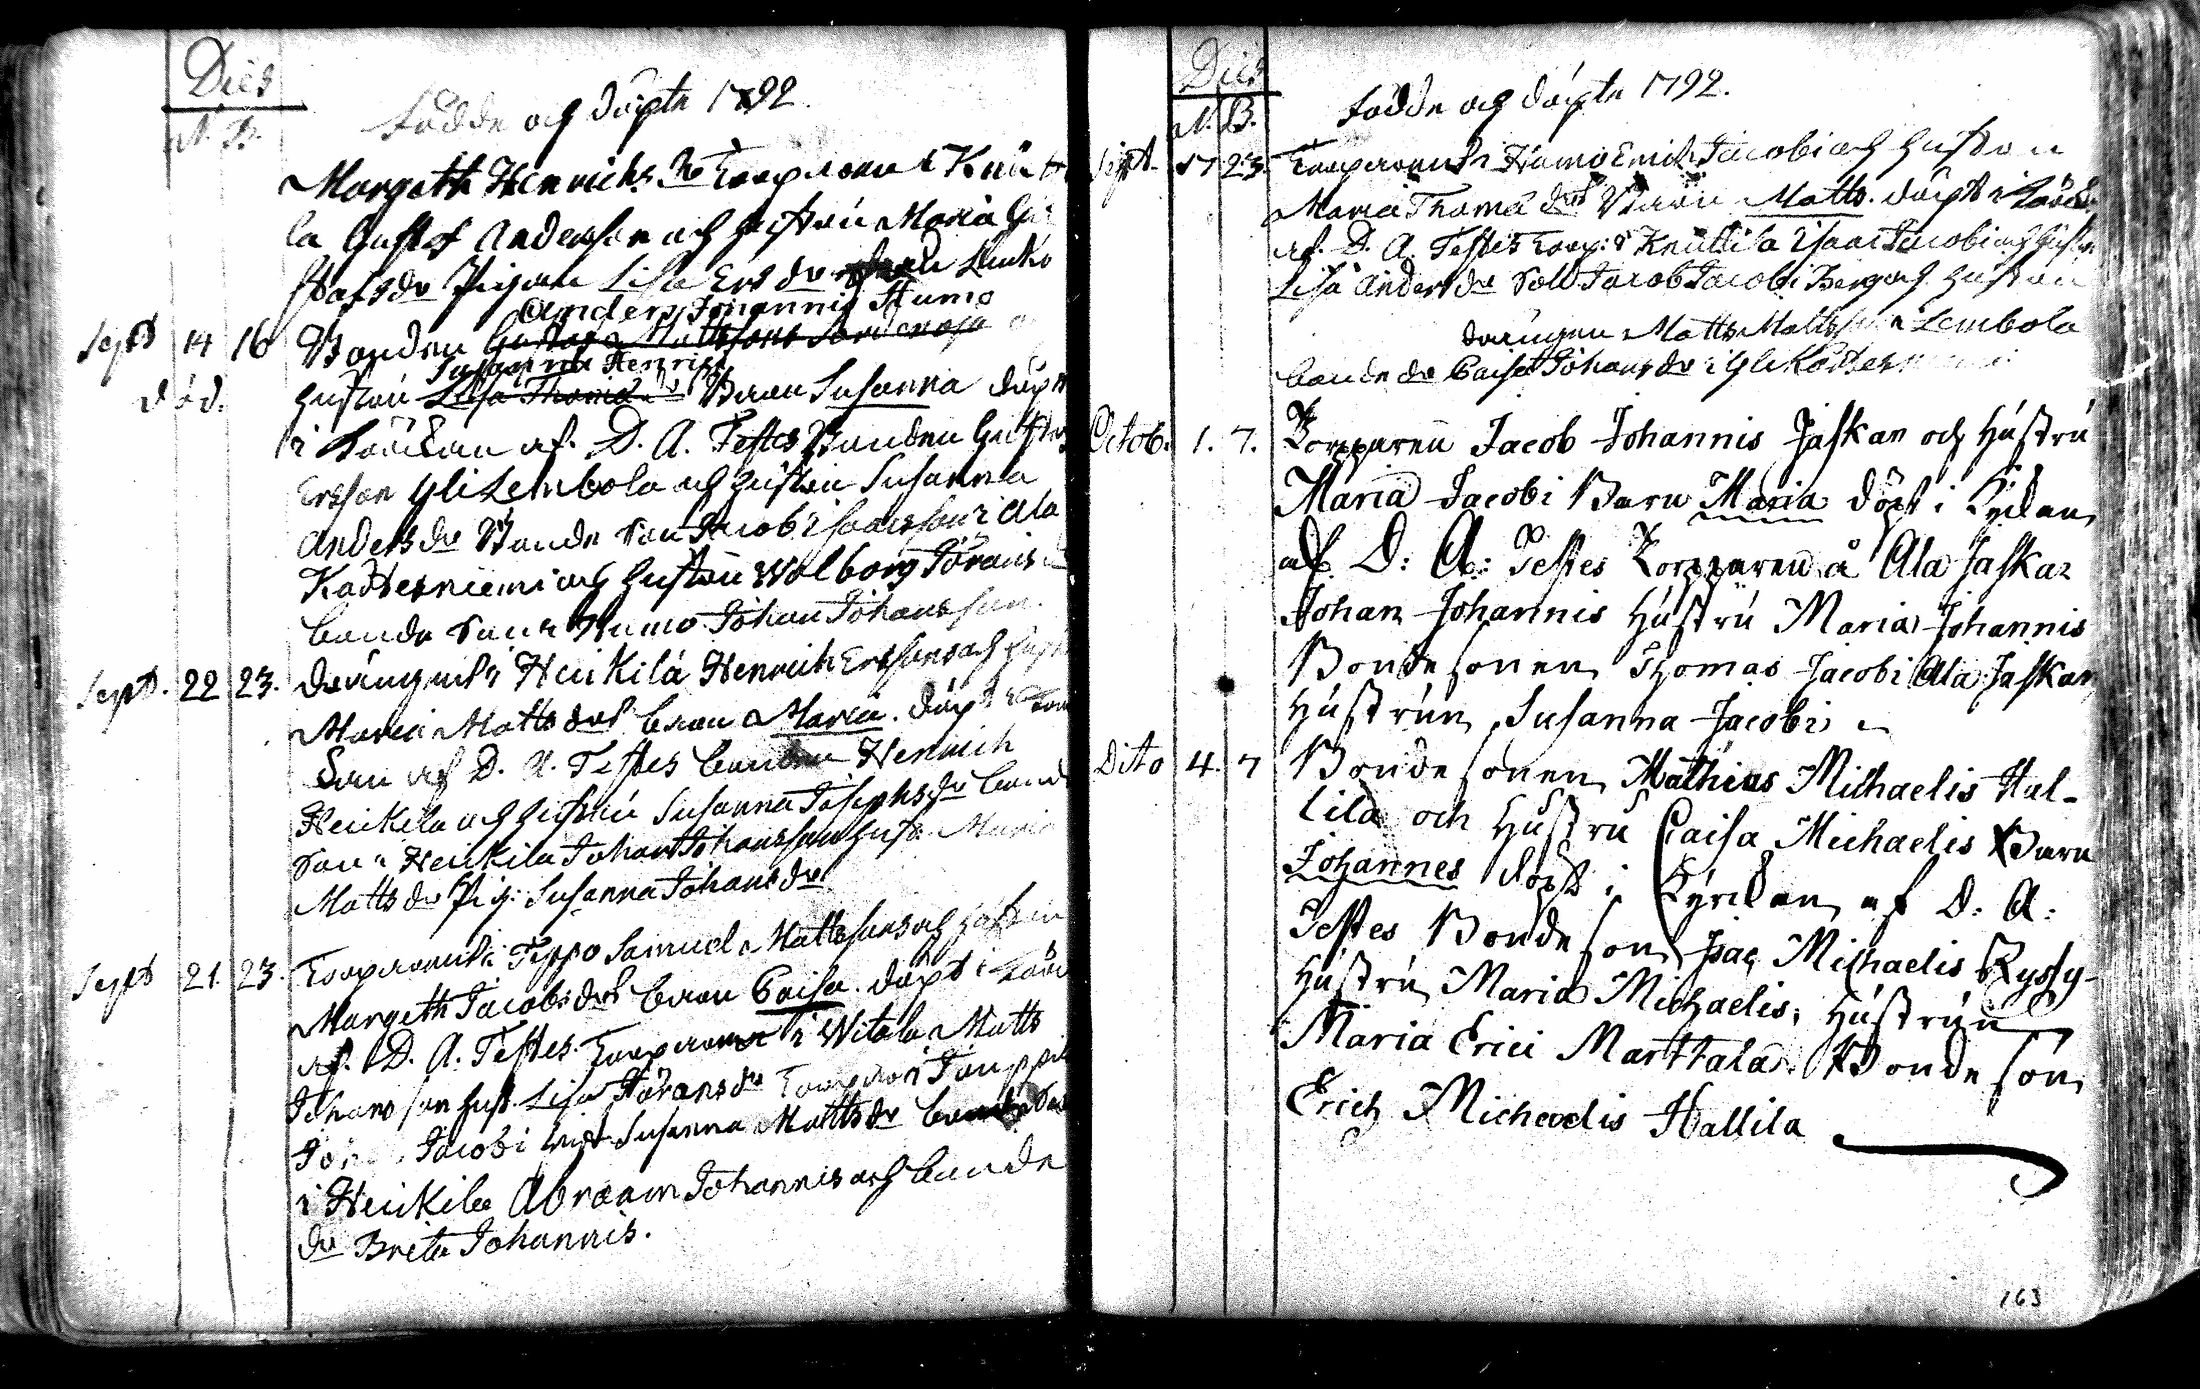 Dies
N. B.
Födde och döpte 1792.
Margeth Henrichs dr Torparen i Knuti
la Gustaf Andersson och hustrun Maria Gu
stafsdr Pigan Lisa Ersdr Lemko
Anders Johannis Humo
Sept 14 16 Bonden Gustaf Mattssons
Susanna Henrics
död. hustrun Lisa Thomædr Barn Susanna döpt
i Kÿrckan af D. A. Testes Bonden Gustaf
Ersson Yli Lembola och hustrun Susanna
Andersdr Bonde Son Jacob Isaacsson i Ala
Kadterniemi och hustrun Wolborg Jörans dr
bonde Son i Humo Johan Johansson.
Sept. 22 23. Drängens i Heickilä Henrich Erssons och hustru
Maria Mattsdrs barn Maria. döpt i Kÿrc
kan af D. A. Testes bonden Henrich
Heickila och hustrun Susanna Josephsdr bonde
Son i Heickila Johan Johansson hust. Maria
Matts dr Pig. Susanna Johansdr
Sept 21. 23. Torparens i Teppo Samuel Mattssons och hustrun
Margeth Jacobsdrs barn Caisa. döpt i Kÿrc
af. D. A. Testes. Torparen i Witala Matts
Johansson hust. Lisa Jöransdr Torpar i
Joh Jacobi hust Susanna Mattsdr bonde Son
i Heickila Abraam Johannis och bonde
dr Brita Johannis.
Dies
N. B.
Födde och döpte 1792.
Sept. 17 23. Torparens i Humo Erich Jacobi och hustrun
Maria Thomæ drs Barn Matts. döpt i Kÿrck.
af. D. A. Testes Torp: i Knuttila Isaac Jacobi och hustr
Lisa Andersdr Sold Jacob Jacobi Berg och hustrun
drängen Matts Mattsson i Lembola
bonde dr Caisa Johansdr i Yli Kadterniemi
Octob. 1. 7. Torpparen Jacob Johannis Jaskan och Hustru
Maria Jacobi Barn Maria döpt i Kyrkan
af D: A: Testes Torpparen å Ala Jaskar
Johan Johannis Hustru Maria Johannis
Bondesonen Thomas Jacobi Ala Jaskan
Hustrun Susanna Jacobi
Dito 4. 7 Bondesonen Mathias Michaelis Hal-
lila och Hustru Caisa Michaelis Barn
Johannes döpt i Kyrckan af D: A:
Testes Bondeson Isac Michaelis Ryssy-
Hustru Maria Michaelis, Hustrun
Maria Erici Marttala. Bondeson
Erich Michaelis Hallila
163